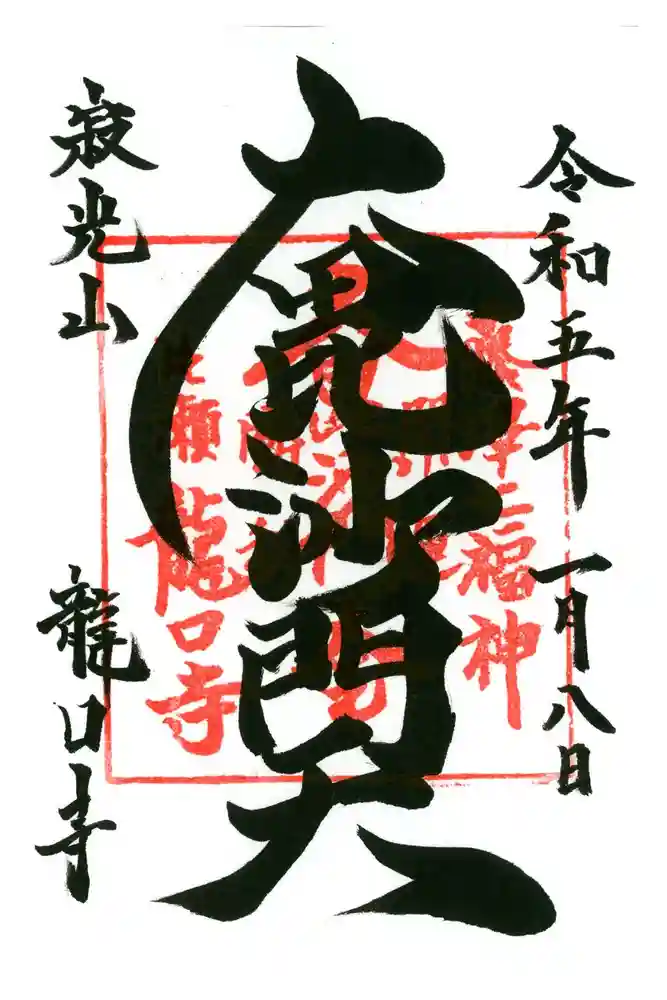 令和五年一月八日
大毘沙門天
寂光山
龍口寺
三福神
龍口寺